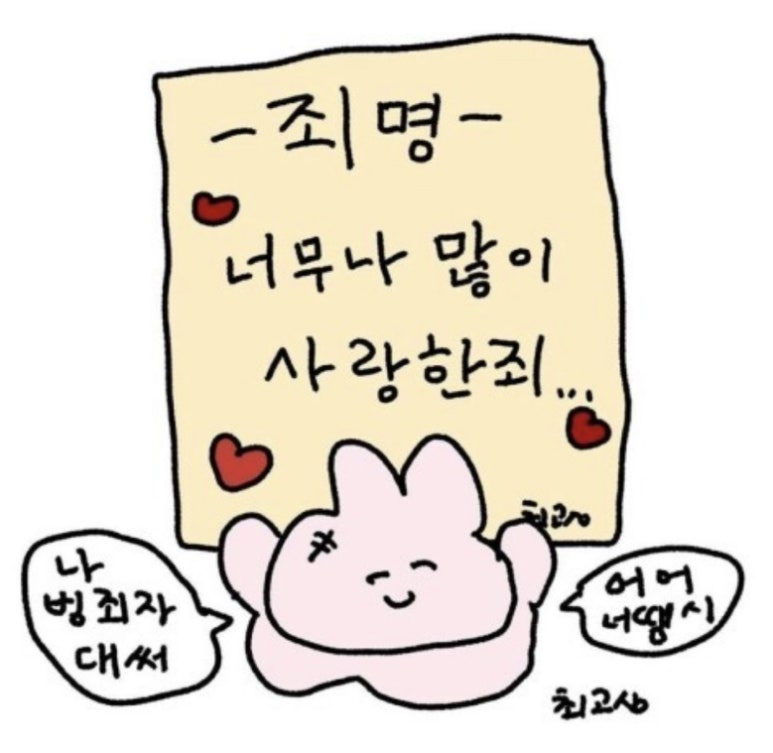 -죄명-
너무나 많이
사랑한죄...
최고심
나
범죄자
대써
어머
너땜시
최고심